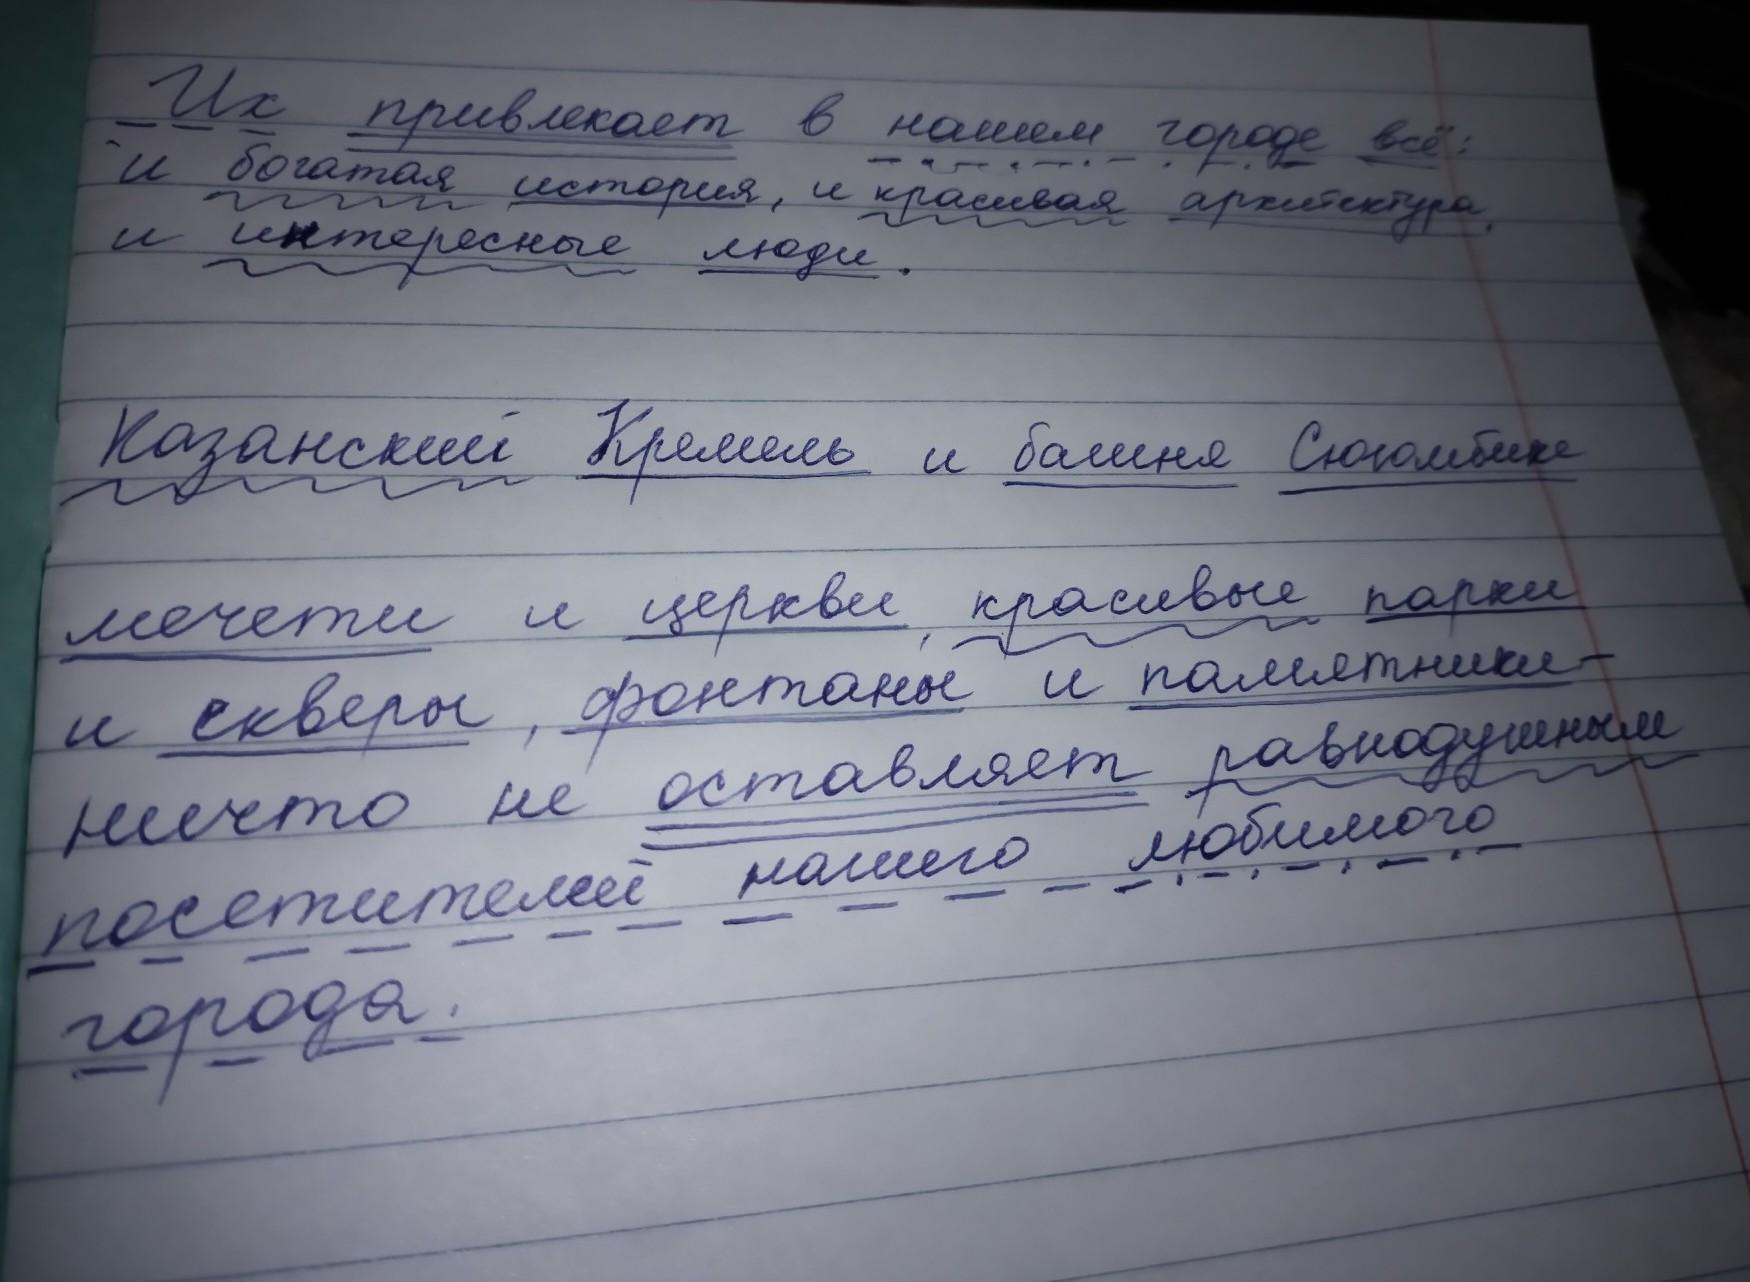 Их привлекает в нашем городе всё:
и богатая история, и красивая архитектура,
и интересные люди.
Казанский Кремль и башня Сююмбике
мечети и церкви, красивые парки
и скверы, фонтаны и памятники -
ничто не оставляет равнодушным
посетителей нашего любимого
города.